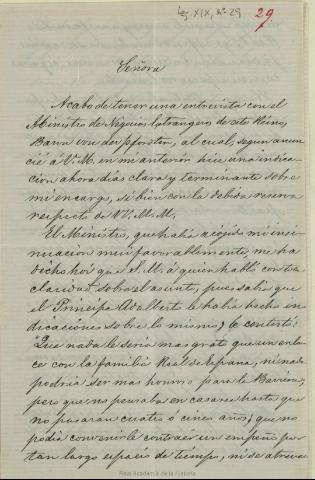 Leg. XIX, nº 29
29
Señora
Acabo de tener una entrevista con el
Ministro de Negocios Extrangeros de este Reino,
Baron von der Pfordten, al cual, segun anun-
cié a V. M. en mi anterior hice una indica-
cion ahora dias clara y terminante sobre
mi encargo, si bien con la debida reserva
respecto de VV. M. M.
El Ministro, que habia acojido mi insi-
nuacion muy favorablemente, me ha
dicho hoy que S. M. a quien habló con tra
claridad sobre el asunto, pues sabia que
el Principe Adalberto le habia hecho in-
dicaciones sobre lo mismo, le contestó:
"Que nada le seria mas grato que un enla-
ce con la familia Real de España, ni nada
podria ser mas honroso para la Baviera;
pero que no pensaba en casarse hasta que
no pasaran cuatro ó cinco años; que no
podia convenirle contraer un empeño por
tan largo espacio de tiempo, ni se atrevia
Real Academia de la Historia